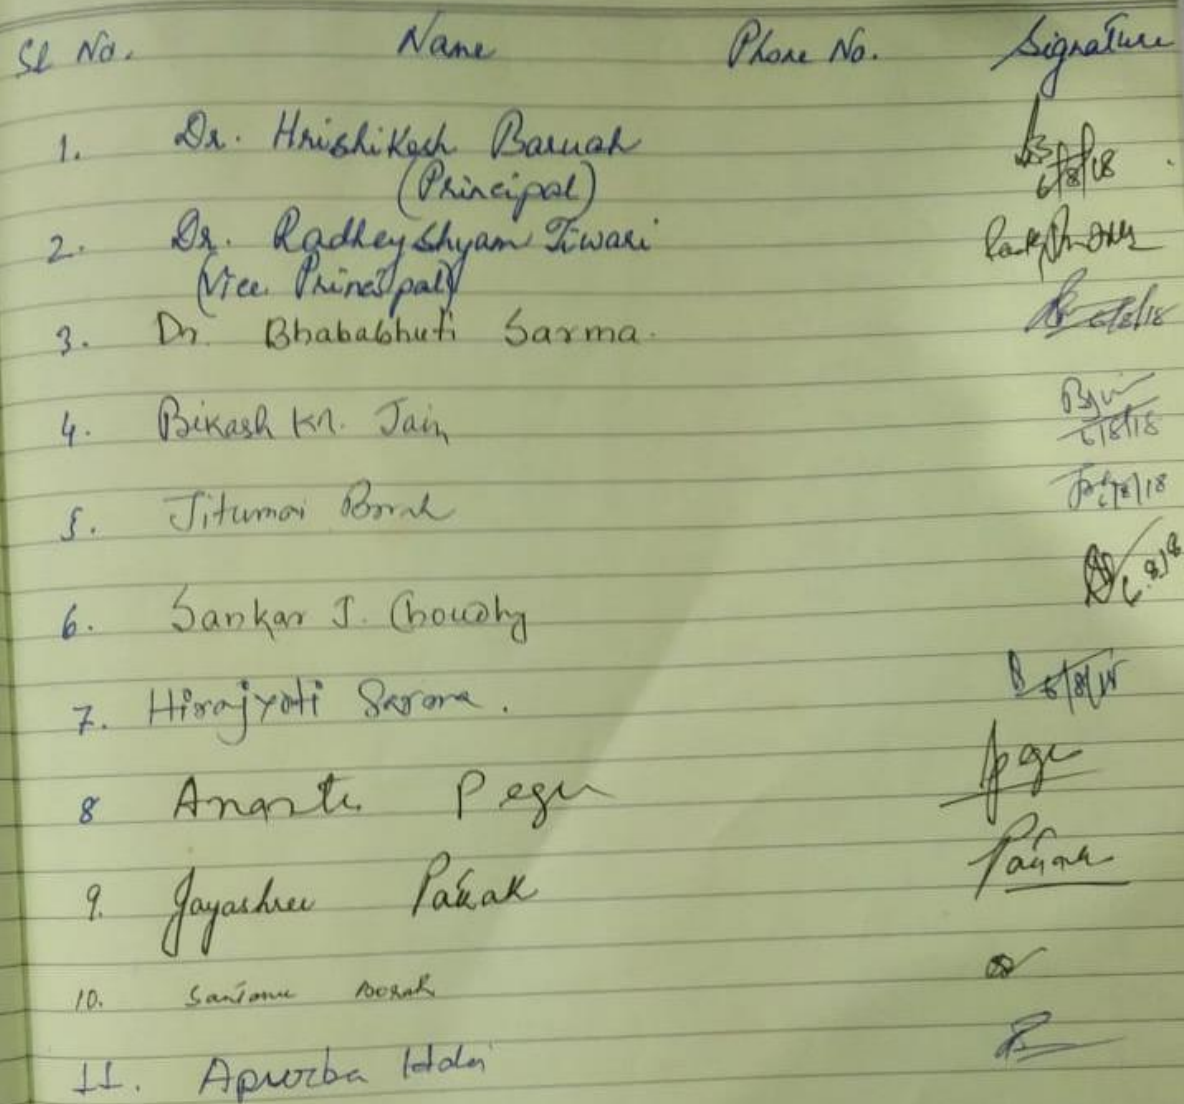 Sl No. Name Phone No. Signature
1. Dr. Hrishikesh Baruah 6/8/18
(Principal)
2. Dr. Radheyshyam Tiwari
(Vice Principal)
3. Dr. Bhababhuti Sarma. 6/8/18
4. Bikash Kr. Jain 6/8/18
5. Jitumoi Borah 6/8/18
6. Sankar J. Choudhy 6.8.18
7. Hirajyoti Sarma. 6/8/18
8 Ananta Pegu Pegu
9. Jayashree
10. Santanu Borah
11. Apurba